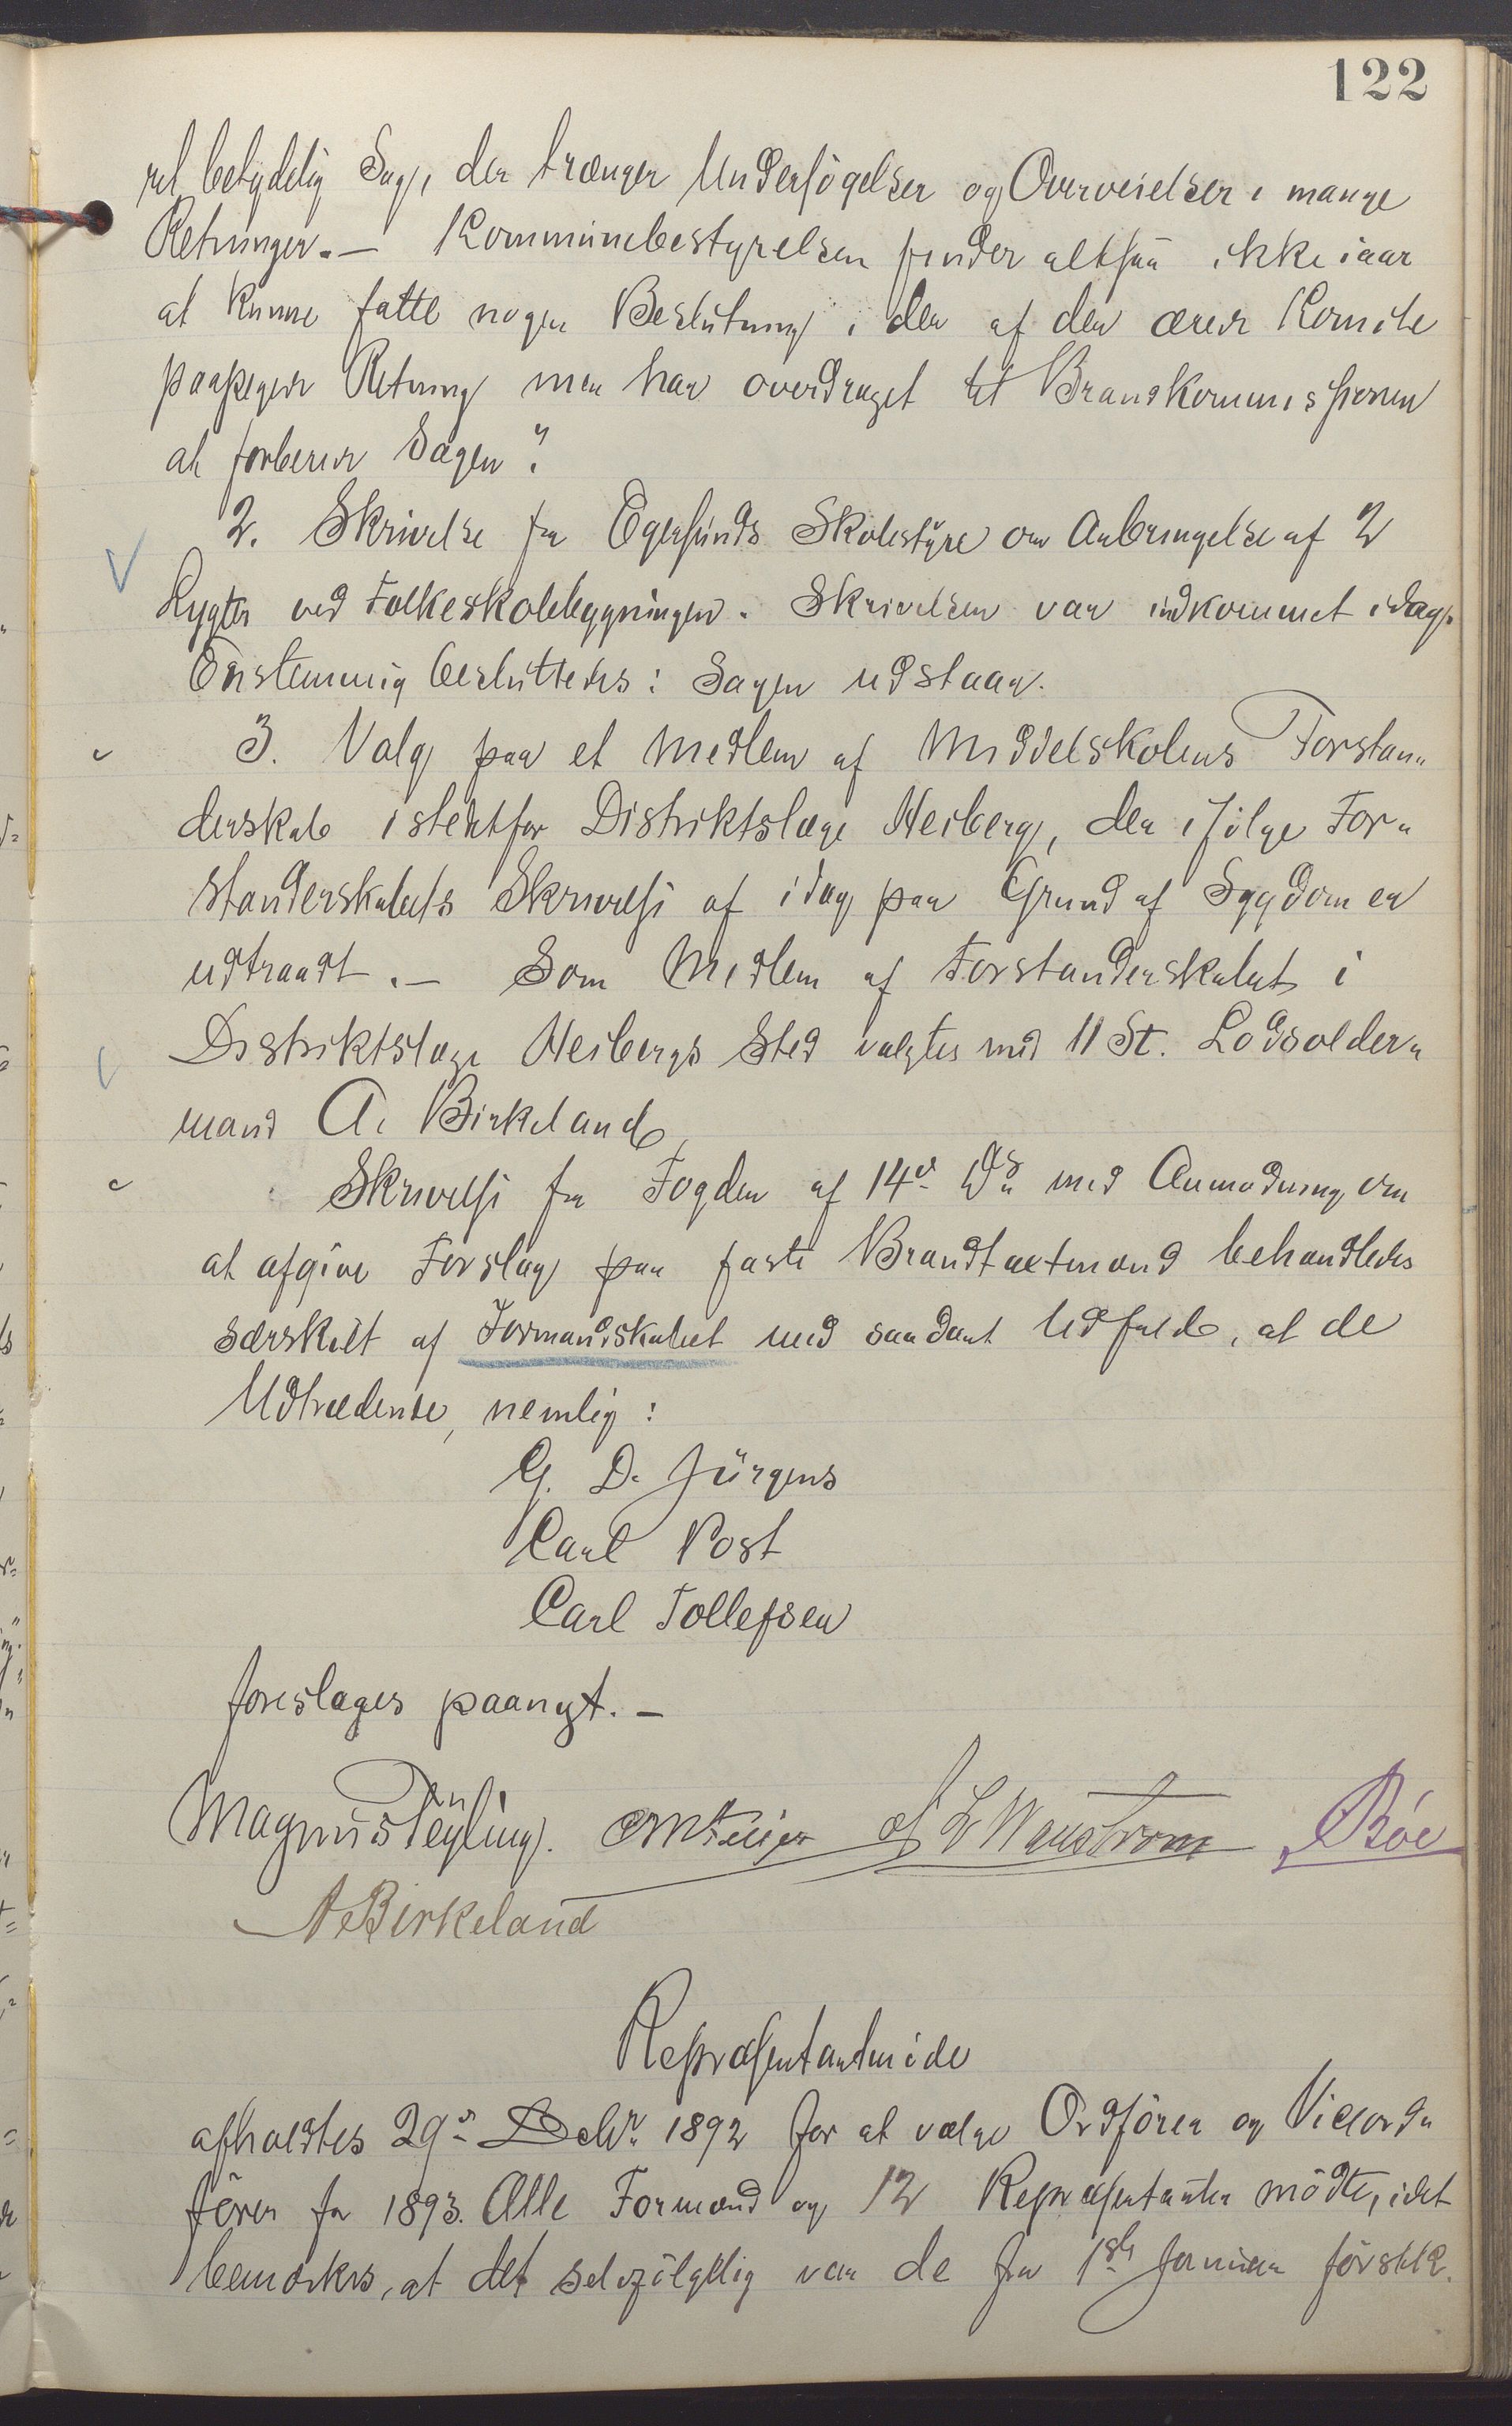 122
betydelig Sag, der trænger Undersøgelser og Overveielser i mange
Retninger. — Kommunebestyrelsen finder altsaa ikke iaar
at kunne fatte nogen Beslutning i den af den ærede Komite
paapegede Retning men har overdraget til Brandkommissionen
at forberede Sagen".
2. Skrivelse fra Egersunds Skolestyre om Anbringelse af 2
Lygter ved Folkeskolebygningen. Skrivelsen var indkommet idag.
Enstemmig besluttedes: Sagen udstaar.
3. Valg paa et Medlem af Middelskolens Forstan-
derskab istedetfor Distriktslæge Heiberg, der ifølge For-
standerskabets Skrivelse af idag paa Grund af Sygdom er
udtraadt. — Som Medlem af Forstanderskabet i
Distriktslæge Heibergs Sted valgtes med 11 St. Lodsolder-
mand A. Birkeland,
Skrivelse fra Fogden af 14de ds med Anmodning om
at afgive Forslag paa faste Brandtaxtmænd behandledes
særskilt af Formandskabet med saadant Udfald, at de
Udtrædende, nemlig:
G. D. Jürgens
Carl Post
Carl Tollefsen
foreslages paanyt. —
Magnus Feyling. af L Wanstrøm Bøe
A Birkeland
Repræsentantmøde
afholdtes 29de Debr. 1892 for at vælge Ordfører og Viceord-
fører for 1893. Alle Formænd og 12 Repræsentanter mødte, idet
bemærkes, at det selvfølgelig var de fra 1ste Januar førstk.